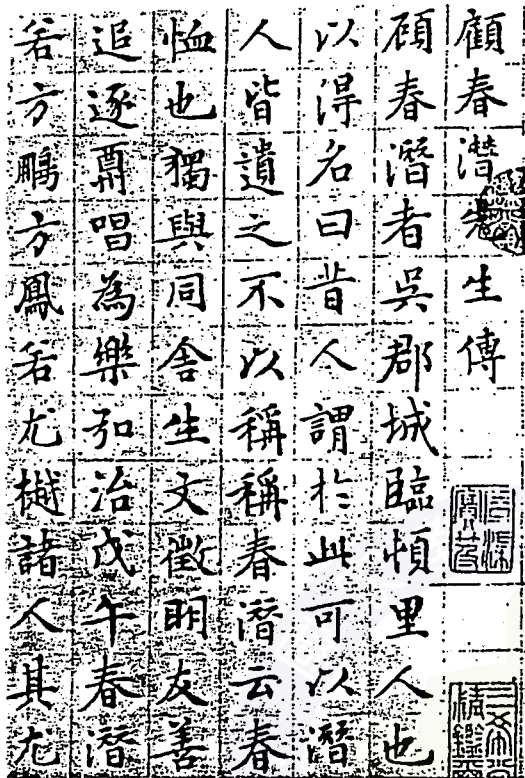 顧春潛先生傳
頋春潛者吳郡城臨頓里人也
以得名曰昔人謂於此可以潛
人皆遺之不以稱稱春潛云春
恤也獨與同舍生文徵明友善
追逐唱為樂弘治戊午春潛
若方鵬方鳳若尤樾諸人其尤